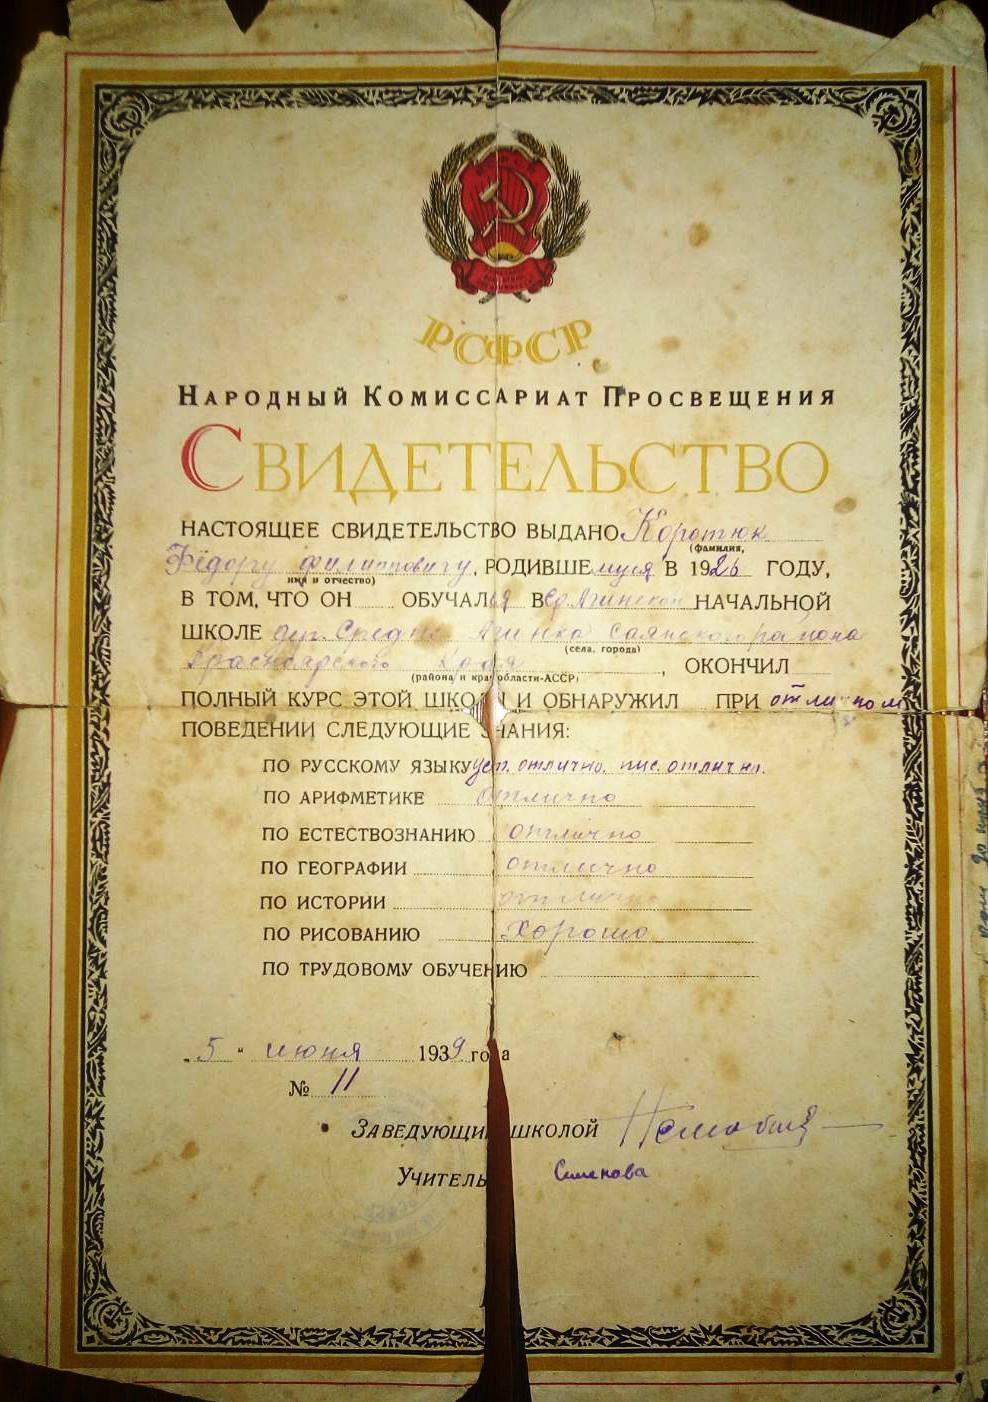 РСФСР
НАРОДНЫЙ КОМИССАРИАТ ПРОСВЕЩЕНИЯ
СВИДЕТЕЛЬСТВО
НАСТОЯЩЕЕ СВИДЕТЕЛЬСТВО ВЫДАНО Коротюк
(фамилия,
Фёдору Филипповичу, РОДИВШЕмуся В 1926 ГОДУ,
имя и отчество)
В ТОМ, ЧТО ОН ОБУЧАЛся В Ср. Агинской НАЧАЛЬНОЙ
ШКОЛЕ Средне Агинка Саянского района
(села, города)
Красноярского Края, ОКОНЧИЛ
(района и края области-АССР)
ПОЛНЫЙ КУРС ЭТОЙ ШКОЛЫ И ОБНАРУЖИЛ ПРИ отличном
ПОВЕДЕНИИ СЛЕДУЮЩИЕ ЗНАНИЯ:
ПО РУССКОМУ ЯЗЫКУ уст. отлично. пис. отлично.
ПО АРИФМЕТИКЕ отлично
ПО ЕСТЕСТВОЗНАНИЮ отлично
ПО ГЕОГРАФИИ отлично
ПО ИСТОРИИ отлично
ПО РИСОВАНИЮ Хорошо
ПО ТРУДОВОМУ ОБУЧЕНИЮ
„5" июня 1939 года
№ 11
ЗАВЕДУЮЩИЙ ШКОЛОЙ
УЧИТЕЛЬ